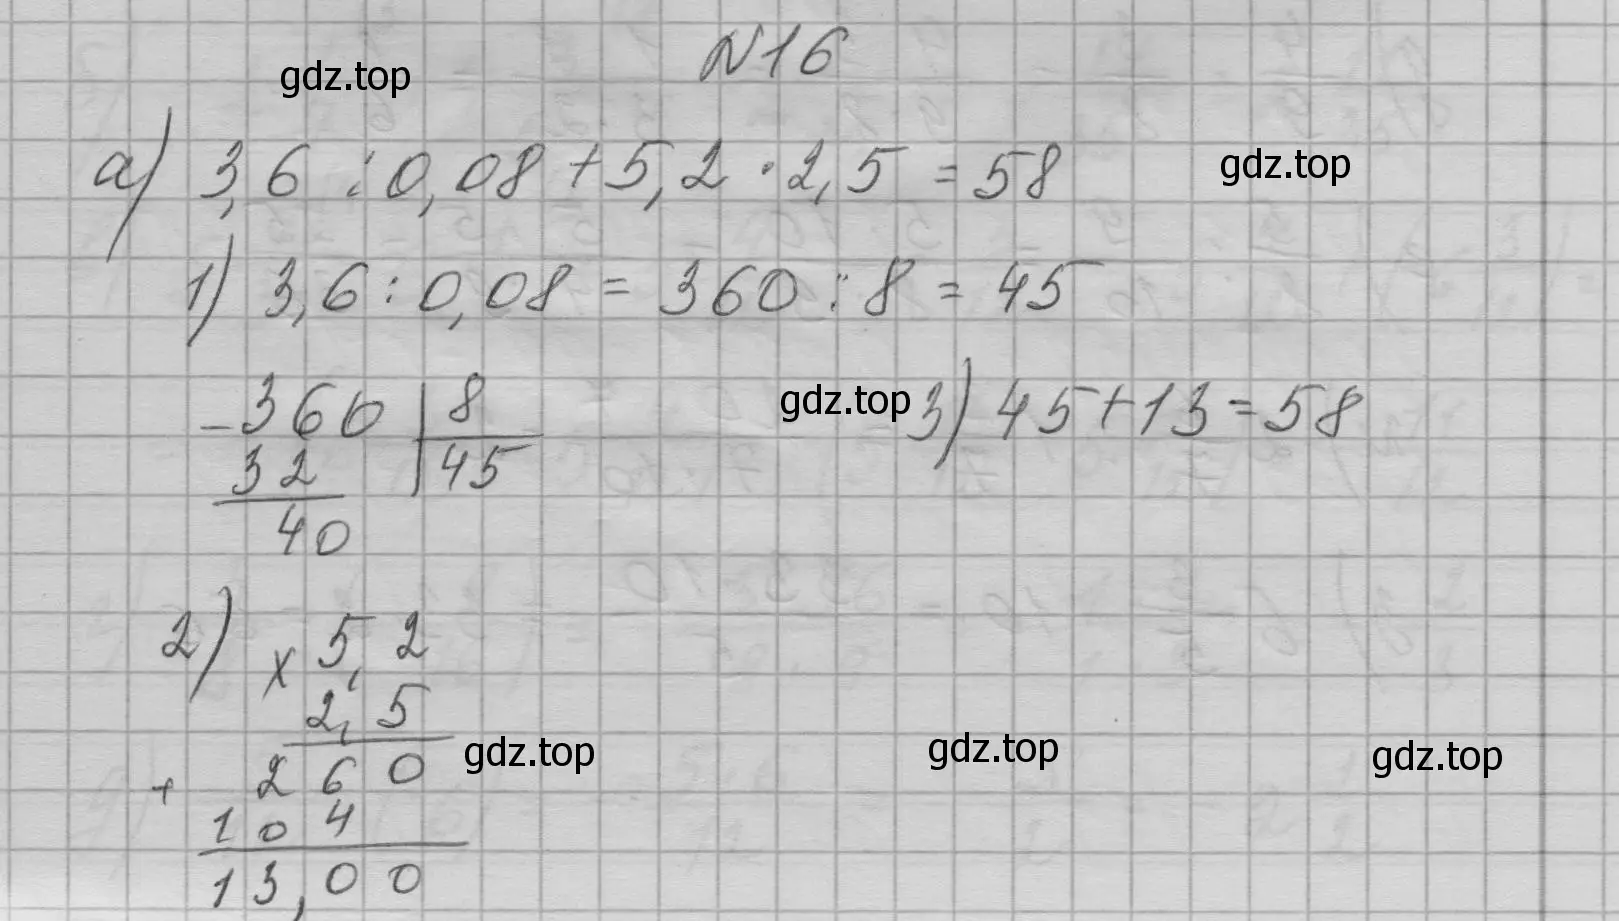 N16
gdz.top
а) 3,6 : 0,08 + 5,2 · 2,5 = 58
gdz.top
1) 3,6 : 0,08 = 360 : 8 = 45
- 360 | 8
32 | 45
40
gdz.top
3) 45 + 13 = 58
2) × 5,2
2,5
gdz.top
gdz.top
gdz.top
+ 260
104
13,00